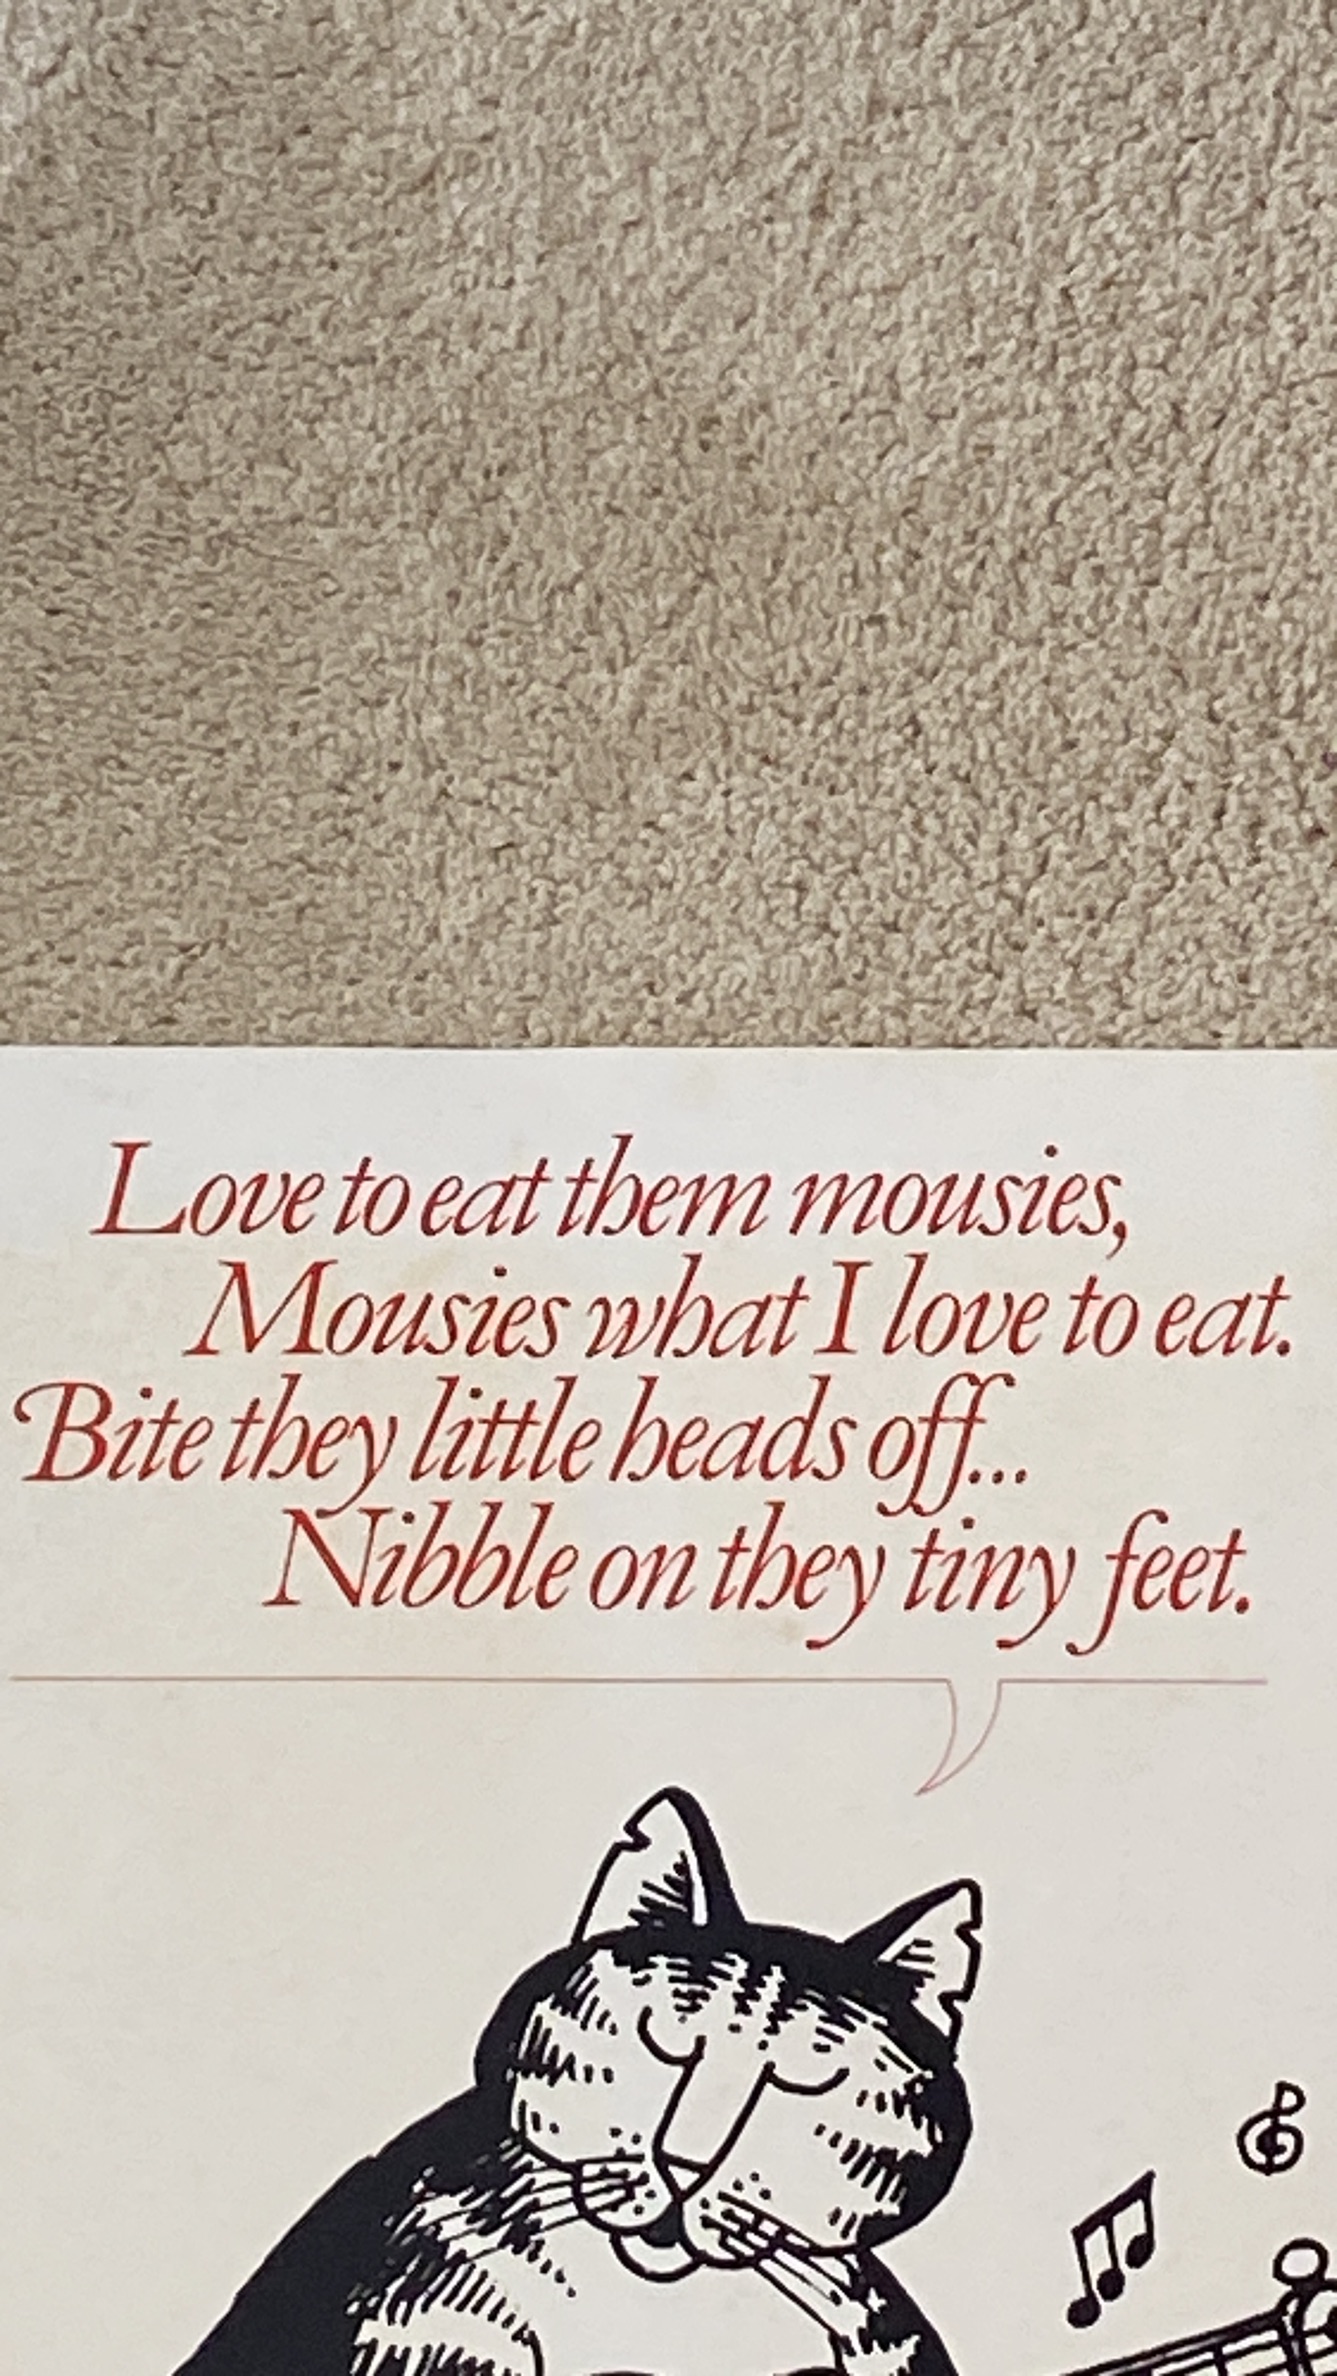 Love to eat them mousies,
Mousies what I love to eat.
Bite they little heads off...
Nibble on they tiny feet.